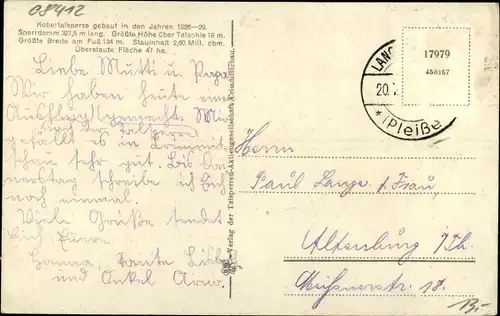 08412
Kobertalsperre gebaut in den Jahren 1926-29.
Sperrdamm 327,5 m lang. Größte Höhe über Talsohle 19 m.
Größte Breite am Fuß 134 m. Stauinhalt 2,60 Mill. cbm.
Überstaute Fläche 47 ha.
Liebe Mutti u. Papa
Wir haben heute ein
Ausflug gemacht. Mir
Talsperre
gefällt es in
schon sehr gut. Bis
schreibe ich Euch
noch einmal.
Viele Grüße sendet
Euch
Hanna, Tante
und Onkel
Verlag der Talsperren-Aktiengesellschaft Crimmitschau.
LANG
20.
* (Pleiße
17979
450157
Herrn
Paul Lange u. Frau,
Altenburg Th.
18.
13.-